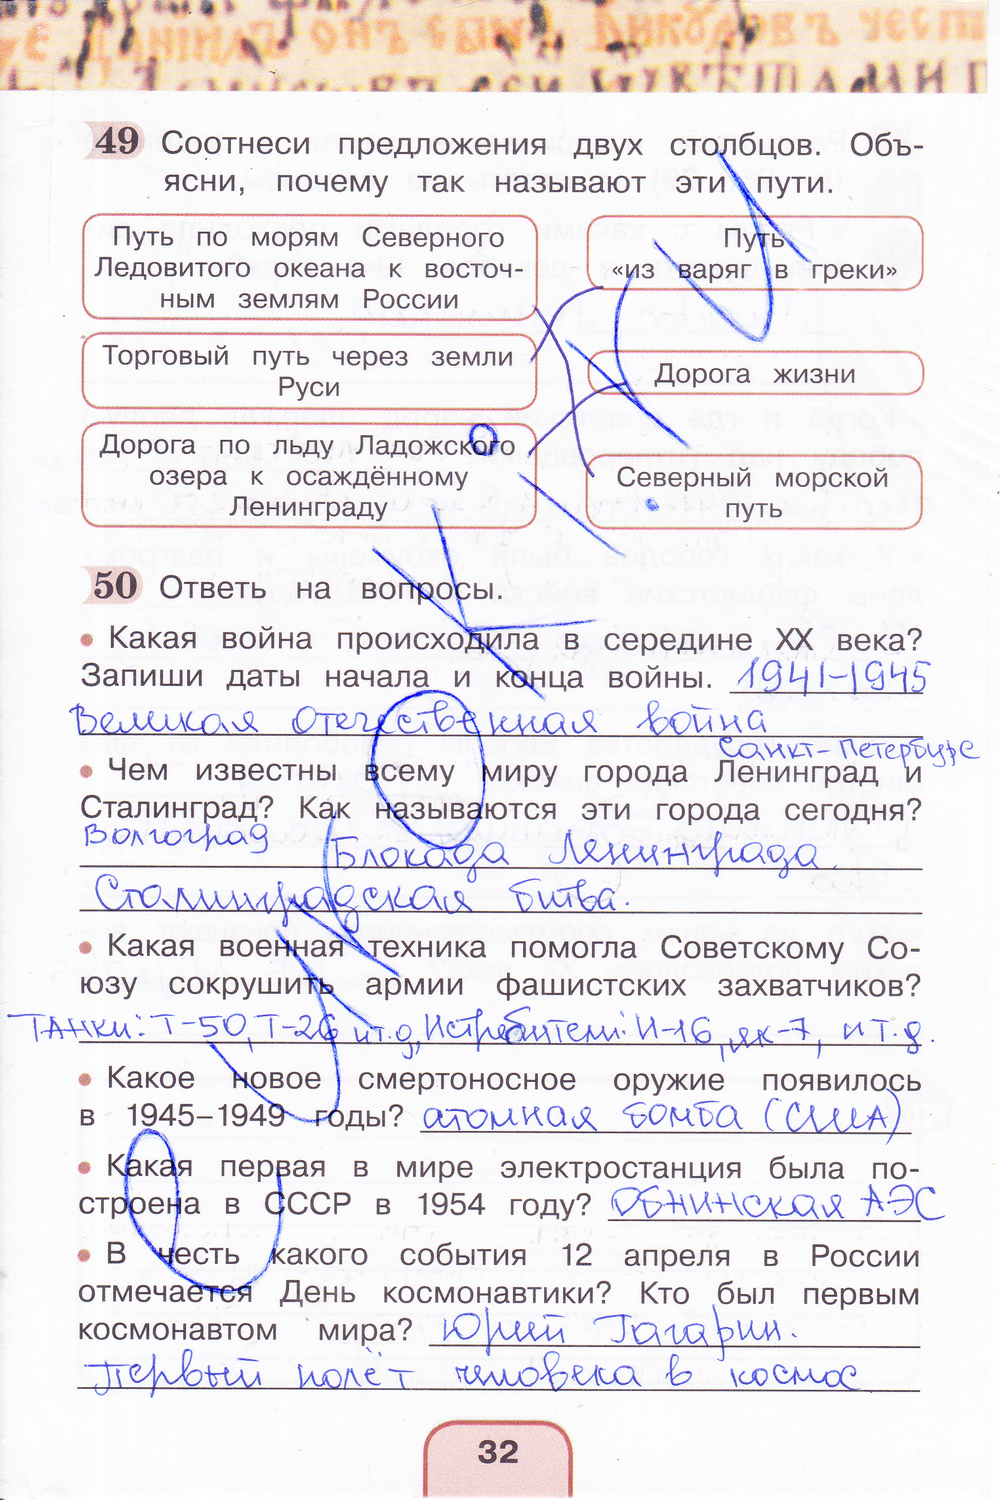 49 Соотнеси предложения двух столбцов. Объ-
ясни, почему так называют эти пути.
Путь по морям Северного
Ледовитого океана к восточ-
ным землям России
Торговый путь через земли
Руси
Дорога по льду Ладожского
озера к осаждённому
Ленинграду
Путь
«из варяг в греки»
Дорога жизни
Северный морской
путь
50 Ответь на вопросы.
• Какая война происходила в середине XX века?
Запиши даты начала и конца войны. 1941-1945
Великая Отечественная война
Санкт-Петербург
• Чем известны всему миру города Ленинград и
Сталинград? Как называются эти города сегодня?
Волгоград Блокада Ленинграда
Сталинградская битва.
• Какая военная техника помогла Советскому Со-
юзу сокрушить армии фашистских захватчиков?
Танки: Т-50, Т-26 и т.д, Истребители: И-16, як-7, и т.д.
• Какое новое смертоносное оружие появилось
в 1945–1949 годы? атомная бомба (США)
• Какая первая в мире электростанция была по-
строена в СССР в 1954 году? Обнинская АЭС
• В честь какого события 12 апреля в России
отмечается День космонавтики? Кто был первым
космонавтом мира? Юрий Гагарин.
Первый полёт человека в космос
32